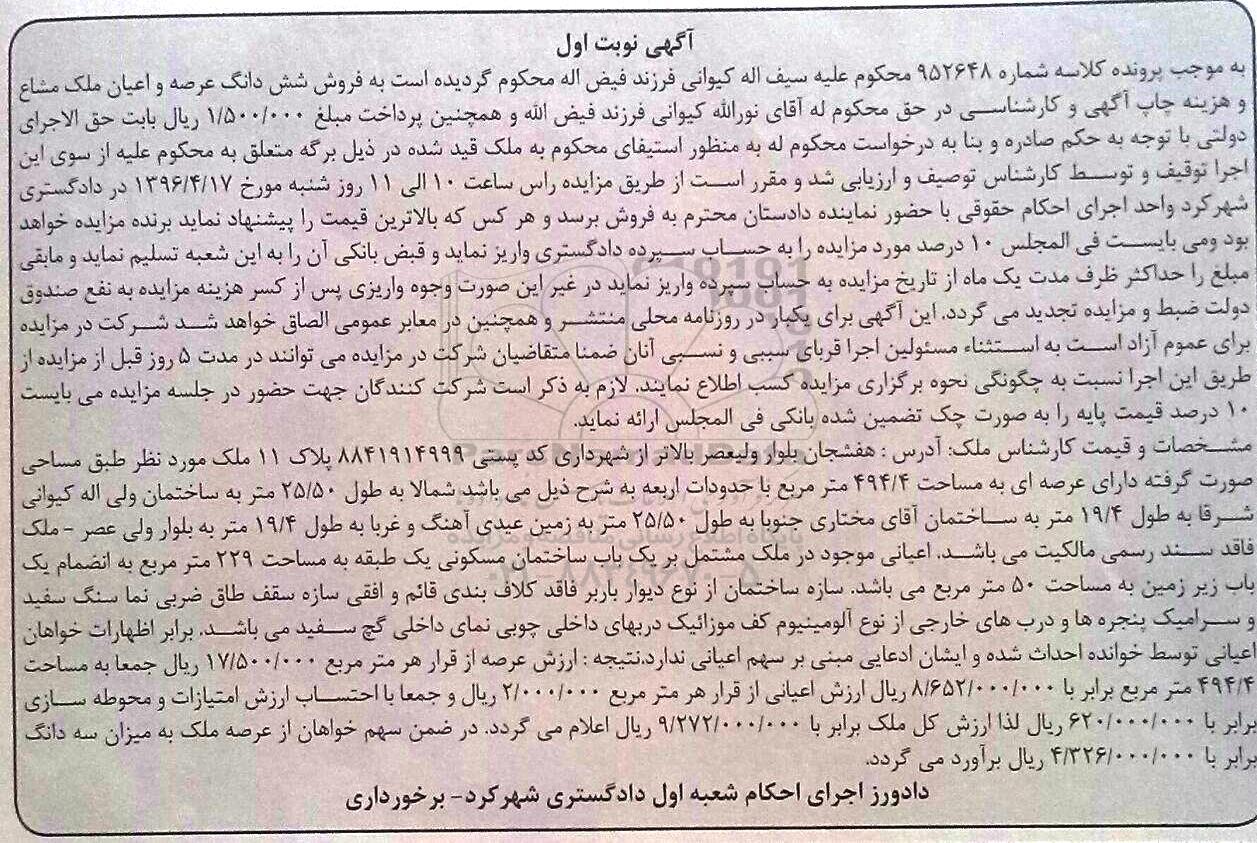 آگهی نوبت اول
به موجب پرونده کلاسه شماره ۹۵۲۶۴۸ محکوم علیه سیف اله کیوانی فرزند فیض اله محکوم گردیده است به فروش شش دانگ عرصه و اعیان ملک مشاع
و هزینه چاپ آگهی و کارشناسی در حق محکوم له آقای نورالله کیوانی فرزند فیض الله و همچنین پرداخت مبلغ ۱/۵۰۰/۰۰۰ ریال بابت حق الاجرای
دولتی با توجه به حکم صادره و بنا به درخواست محکوم له به منظور استیفای محکوم به ملک قید شده در ذیل برگه متعلق به محکوم علیه از سوی این
اجرا توقیف و توسط کارشناس توصیف و ارزیابی شد و مقرر است از طریق مزایده راس ساعت ۱۰ الی ۱۱ روز شنبه مورخ ۱۳۹۶/۴/۱۷ در دادگستری
شهرکرد واحد اجرای احکام حقوقی با حضور نماینده دادستان محترم به فروش برسد و هر کس که بالاترین قیمت را پیشنهاد نماید برنده مزایده خواهد
بود ومی بایست فی المجلس ۱۰ درصد مورد مزایده را به حساب سپرده دادگستری واریز نماید و قبض بانکی آن را به این شعبه تسلیم نماید و مابقی
مبلغ را حداکثر ظرف مدت یک ماه از تاریخ مزایده به حساب سپرده واریز نماید در غیر این صورت وجوه واریزی پس از کسر هزینه مزایده به نفع صندوق
دولت ضبط و مزایده تجدید می گردد. این آگهی برای یکبار در روزنامه محلی منتشر و همچنین در معابر عمومی الصاق خواهد شد شرکت در مزایده
برای عموم آزاد است به استثناء مسئولین اجرا قربای سببی و نسبی آنان ضمنا متقاضیان شرکت در مزایده می توانند در مدت ۵ روز قبل از مزایده از
طریق این اجرا نسبت به چگونگی نحوه برگزاری مزایده کسب اطلاع نمایند. لازم به ذکر است شرکت کنندگان جهت حضور در جلسه مزایده می بایست
۱۰ درصد قیمت پایه را به صورت چک تضمین شده بانکی فی المجلس ارائه نماید.
مشخصات و قیمت کارشناس ملک: آدرس : هفشجان بلوار ولیعصر بالاتر از شهرداری کد پستی ۸۸۴۱۹۱۴۹۹۹ پلاک ۱۱ ملک مورد نظر طبق مساحی
صورت گرفته دارای عرصه ای به مساحت ۴۹۴/۴ متر مربع با حدودات اربعه به شرح ذیل می باشد شمالا به طول ۲۵/۵۰ متر به ساختمان ولی اله کیوانی
شرقا به طول ۱۹/۴ متر به ساختمان آقای مختاری جنوبا به طول ۲۵/۵۰ متر به زمین عبدی آهنگ و غربا به طول ۱۹/۴ متر به بلوار ولی عصر - ملک
فاقد سند رسمی مالکیت می باشد. اعیانی موجود در ملک مشتمل بر یک باب ساختمان مسکونی یک طبقه به مساحت ۲۲۹ متر مربع به انضمام یک
باب زیر زمین به مساحت ۵۰ متر مربع می باشد. سازه ساختمان از نوع دیوار باربر فاقد کلاف بندی قائم و افقی سازه سقف طاق ضربی نما سنگ سفید
و سرامیک پنجره ها و درب های خارجی از نوع آلومینیوم کف موزائیک دربهای داخلی چوبی نمای داخلی گچ سفید می باشد. برابر اظهارات خواهان
اعیانی توسط خوانده احداث شده و ایشان ادعایی مبنی بر سهم اعیانی ندارد.نتیجه : ارزش عرصه از قرار هر متر مربع ۱۷/۵۰۰/۰۰۰ ریال جمعا به مساحت
۴۹۴/۴ متر مربع برابر با ۸/۶۵۲/۰۰۰/۰۰۰ ریال ارزش اعیانی از قرار هر متر مربع ۲/۰۰۰/۰۰۰ ریال و جمعا با احتساب ارزش امتیازات و محوطه سازی
برابر با ۶۲۰/۰۰۰/۰۰۰ ریال لذا ارزش کل ملک برابر با ۹/۲۷۲/۰۰۰/۰۰۰ ریال اعلام می گردد. در ضمن سهم خواهان از عرصه ملک به میزان سه دانگ
برابر با ۴/۳۲۶/۰۰۰/۰۰۰ ریال برآورد می گردد.
دادورز اجرای احکام شعبه اول دادگستری شهرکرد- برخورداری